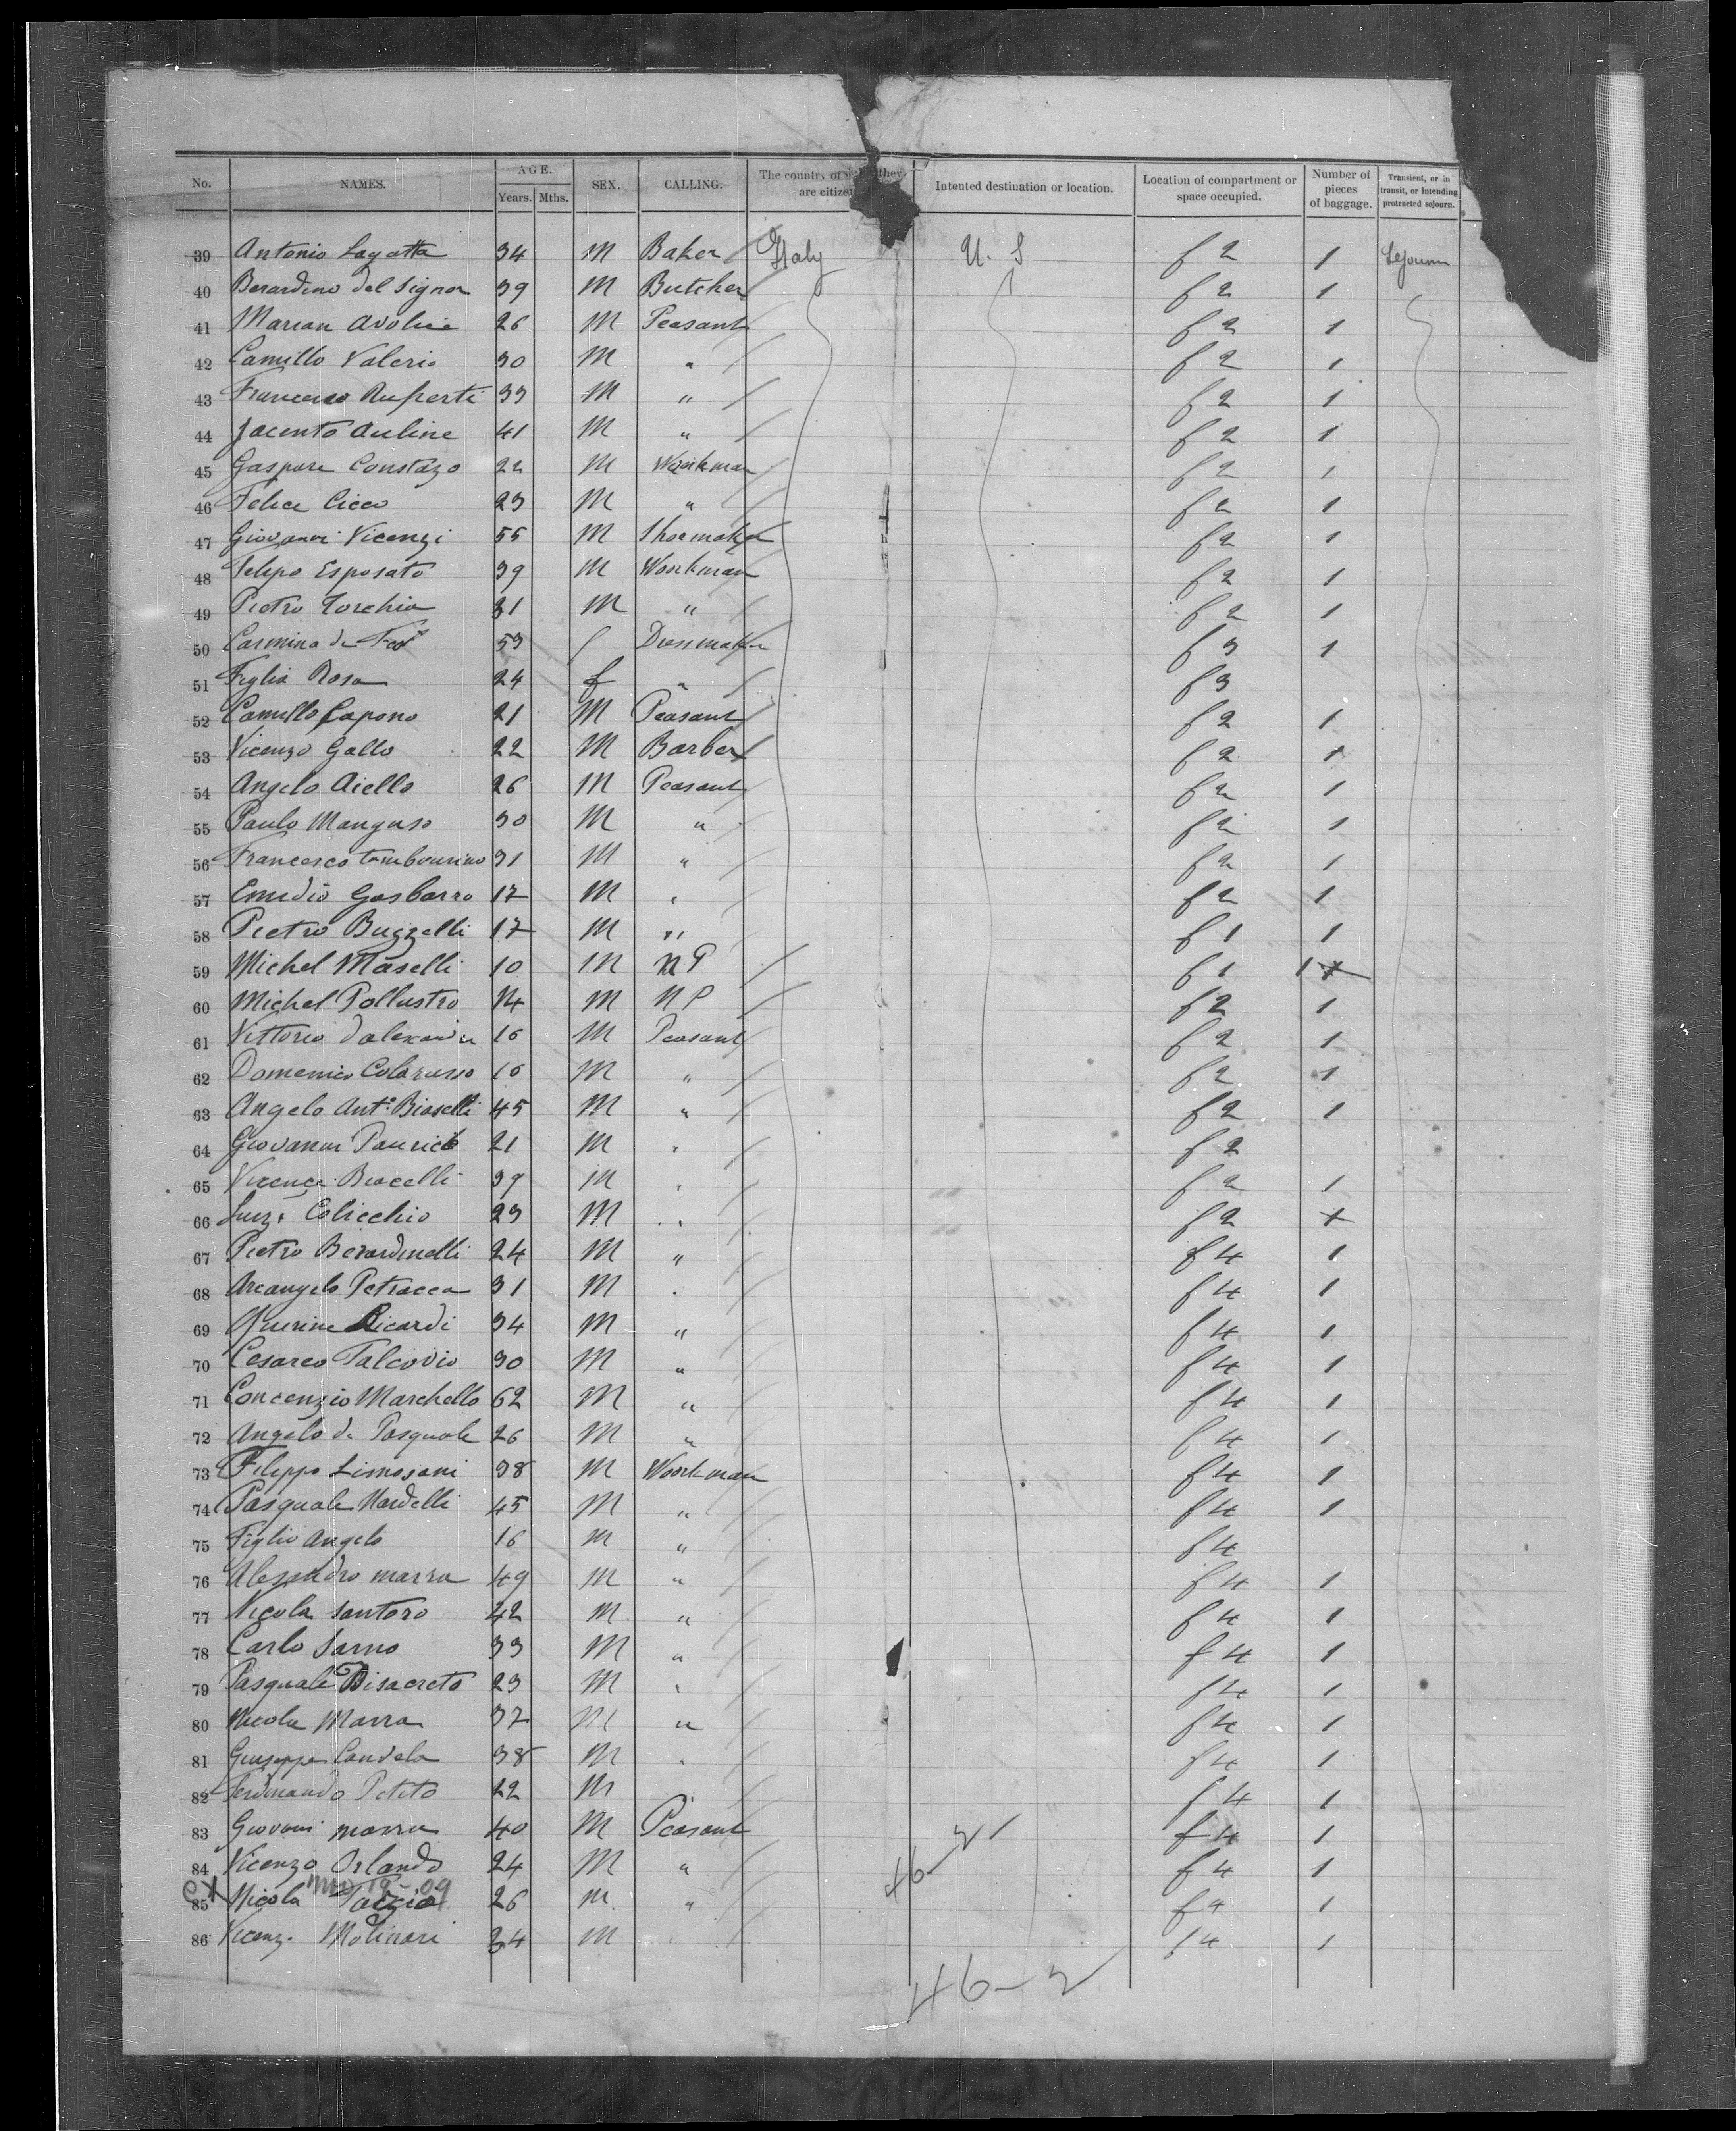 No. NAMES. AGE. Years. Mths. SEX. CALLING. The country of they are citize Intented destination or location. Location of compartment or space occupied. Number of pieces of baggage. Transient, or in transit, or intending protracted sojourn.
39 Antonio Lagatta 34 M Baker Italy U. S f 2 1 Sejourn
40 Berardino del Signor 39 M Butcher f 2 1
41 Marian 26 M Peasant f 2 1
42 Camillo Valerio 30 M " f 2 1
43 Francesco Ruperti 33 M " f 2 1
44 Jacinto Auline 41 M " f 2 1
45 Gaspare Constazo 22 M Woorkman f 2 1
46 Felice Cicco 23 M " f 2 1
47 Giovanni Vicenzi 55 M Shoemaker f 2 1
48 Felipo Esposato 39 M Woorkman f 2 1
49 Pietro Torchia 31 M " f 2 1
50 Carmina de 53 f Dressmaker f 3 1
51 Figlia Rosa 24 f " f 3
52 Camillo Capono 21 M Peasant f 2 1
53 Vicenzo Gallo 22 M Barber f 2 1
54 Angelo Aiello 26 M Peasant f 2 1
55 Paulo Manguso 30 M " f 2 1
56 Francesco tambourino 31 M " f 2 1
57 Emidio Gasbarro 17 M " f 2 1
58 Pietro Buzzelli 17 M " f 1 1
59 Michel Maselli 10 M n P f 1 1
60 Michel Pollustro 14 M N P f 2 1
61 Vittorio 16 M Peasant f 2 1
62 Domenico Colarusso 16 M " f 2 1
63 Angelo Anto. Biaselli 45 M " f 2 1
64 Giovanni 21 M " f 2
65 39 M " f 2 1
66 Luizi Colicchio 23 M " f 2
67 Pietro Berardinelli 24 M " f 4 1
68 Arcangelo Petracca 31 M " f 4 1
69 Querino Ricardi 34 M " f 4 1
70 Cesareo Falcovio 30 M " f 4 1
71 Concenzio Marchello 62 M " f 4 1
72 Angelo de Pasquale 26 M " f 4 1
73 Filippo Limosani 38 M Woorkman f 4 1
74 Pasquale Nardelli 45 M " f 4 1
75 Figlio Angelo 16 M " f 4
76 Alesandro marra 49 M " f 4 1
77 Nicola Santoro 42 M " f 4 1
78 Carlo Sarno 33 M " f 4 1
79 Pasquale Disacreto 23 M " f 4 1
80 Nicola Marra 37 M " f 4 1
81 Giuseppe Candela 38 M " f 4 1
82 Ferdinando Petito 22 M f 4 1
83 Giovani marra 40 M Peasant f 4 1
84 Vicenzo Orlando 24 M " 46-2 f 4 1
85 Nicola 26 M " f 4 1
86 Vicenzo Molinari 34 M f 4 1
46-2